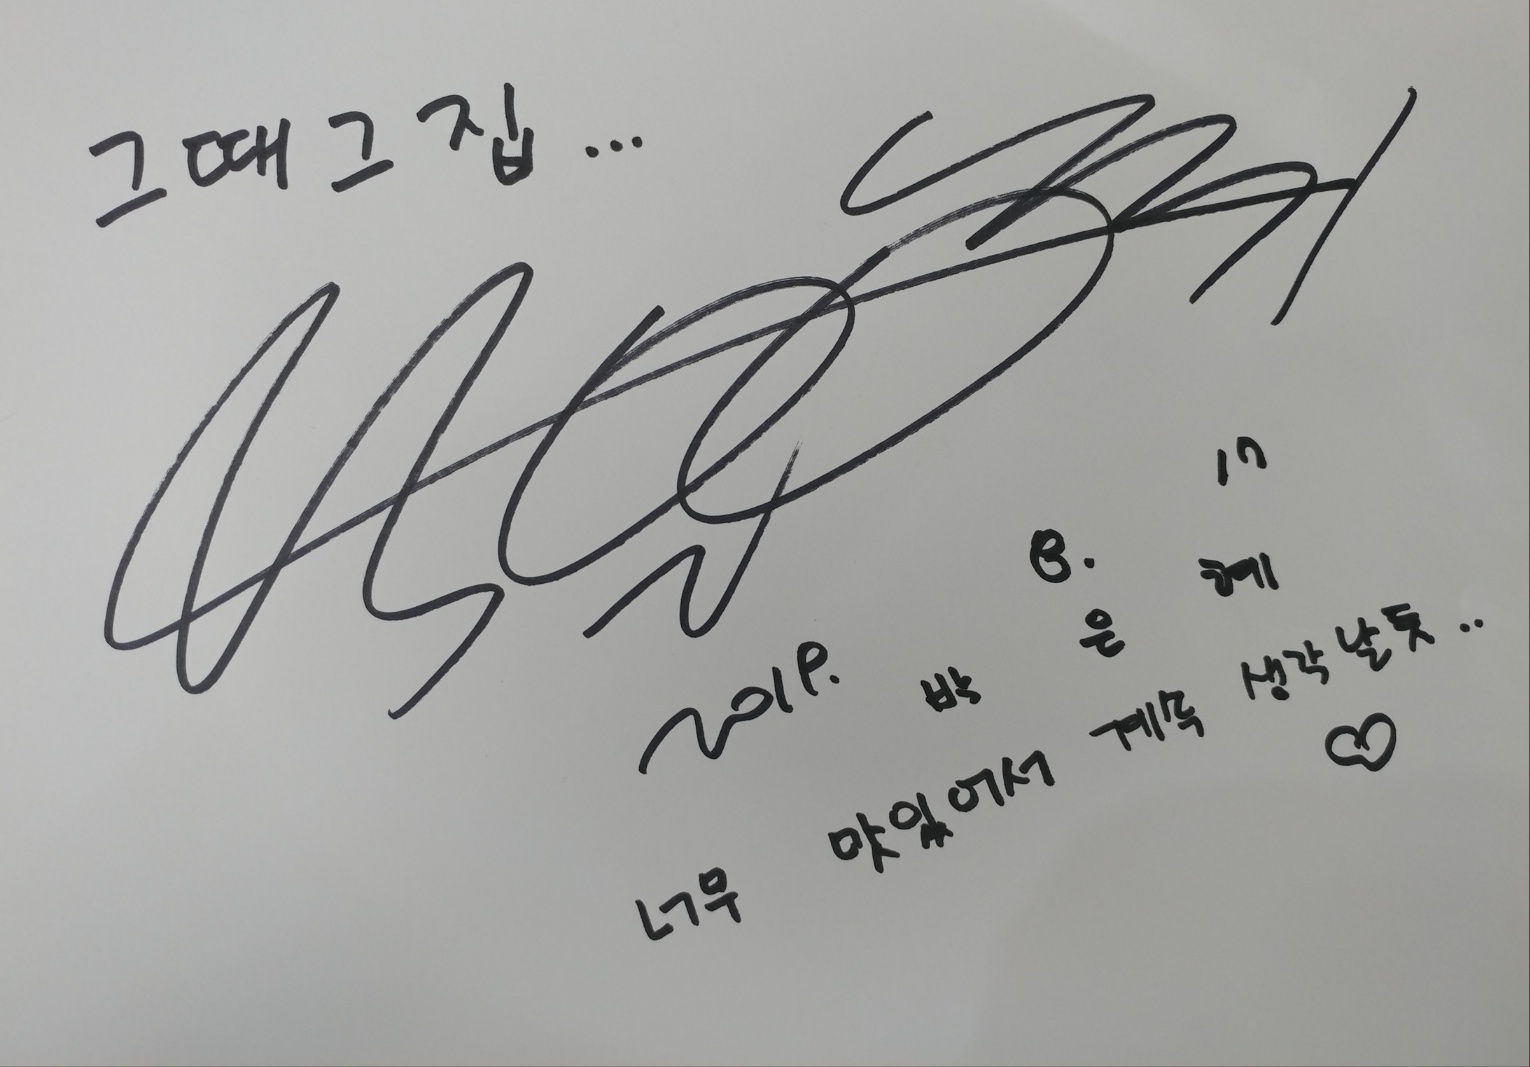 그때그집...
2018. 8. 17
박은혜
너무 맛있어서 계속 생각날듯..